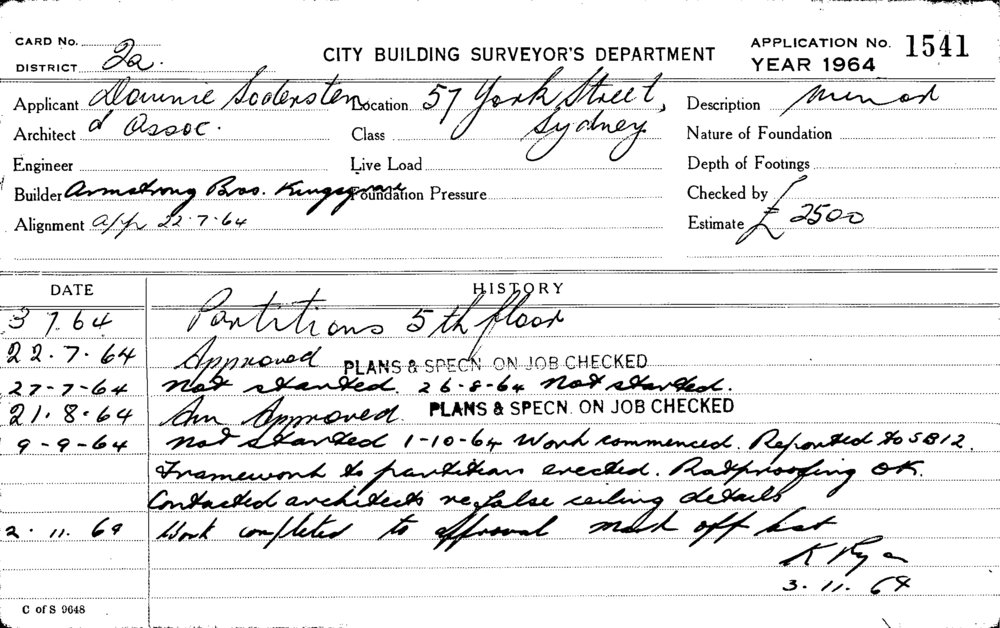 CARD No.
DISTRICT 2a.
CITY BUILDING SURVEYOR'S DEPARTMENT
APPLICATION No. 1541
YEAR 1964
Applicant Downie Sodersten
Location 57 York Street, Sydney.
Description Minor
Architect & Assoc.
Class
Nature of Foundation
Engineer
Live Load
Depth of Footings
Builder Armstrong Bros. Kingsgrove
Foundation Pressure
Checked by
Alignment app 22.7.64
Estimate £ 2500
DATE HISTORY
3 7. 64 Partitions 5th floor
22.7.64 Approved PLANS & SPECN. ON JOB CHECKED
27-7-64 Not started. 26-8-64 Not started.
21.8.64 Am Approved. PLANS & SPECN. ON JOB CHECKED
9-9-64 Not started 1-10-64 Work commenced. Reported to SB12.
Framework to partition erected. Ratproofing OK.
Contacted architects re false ceiling details
2.11.64 Work completed to approval mark off list
K Rya
3.11.64
C of S 9648